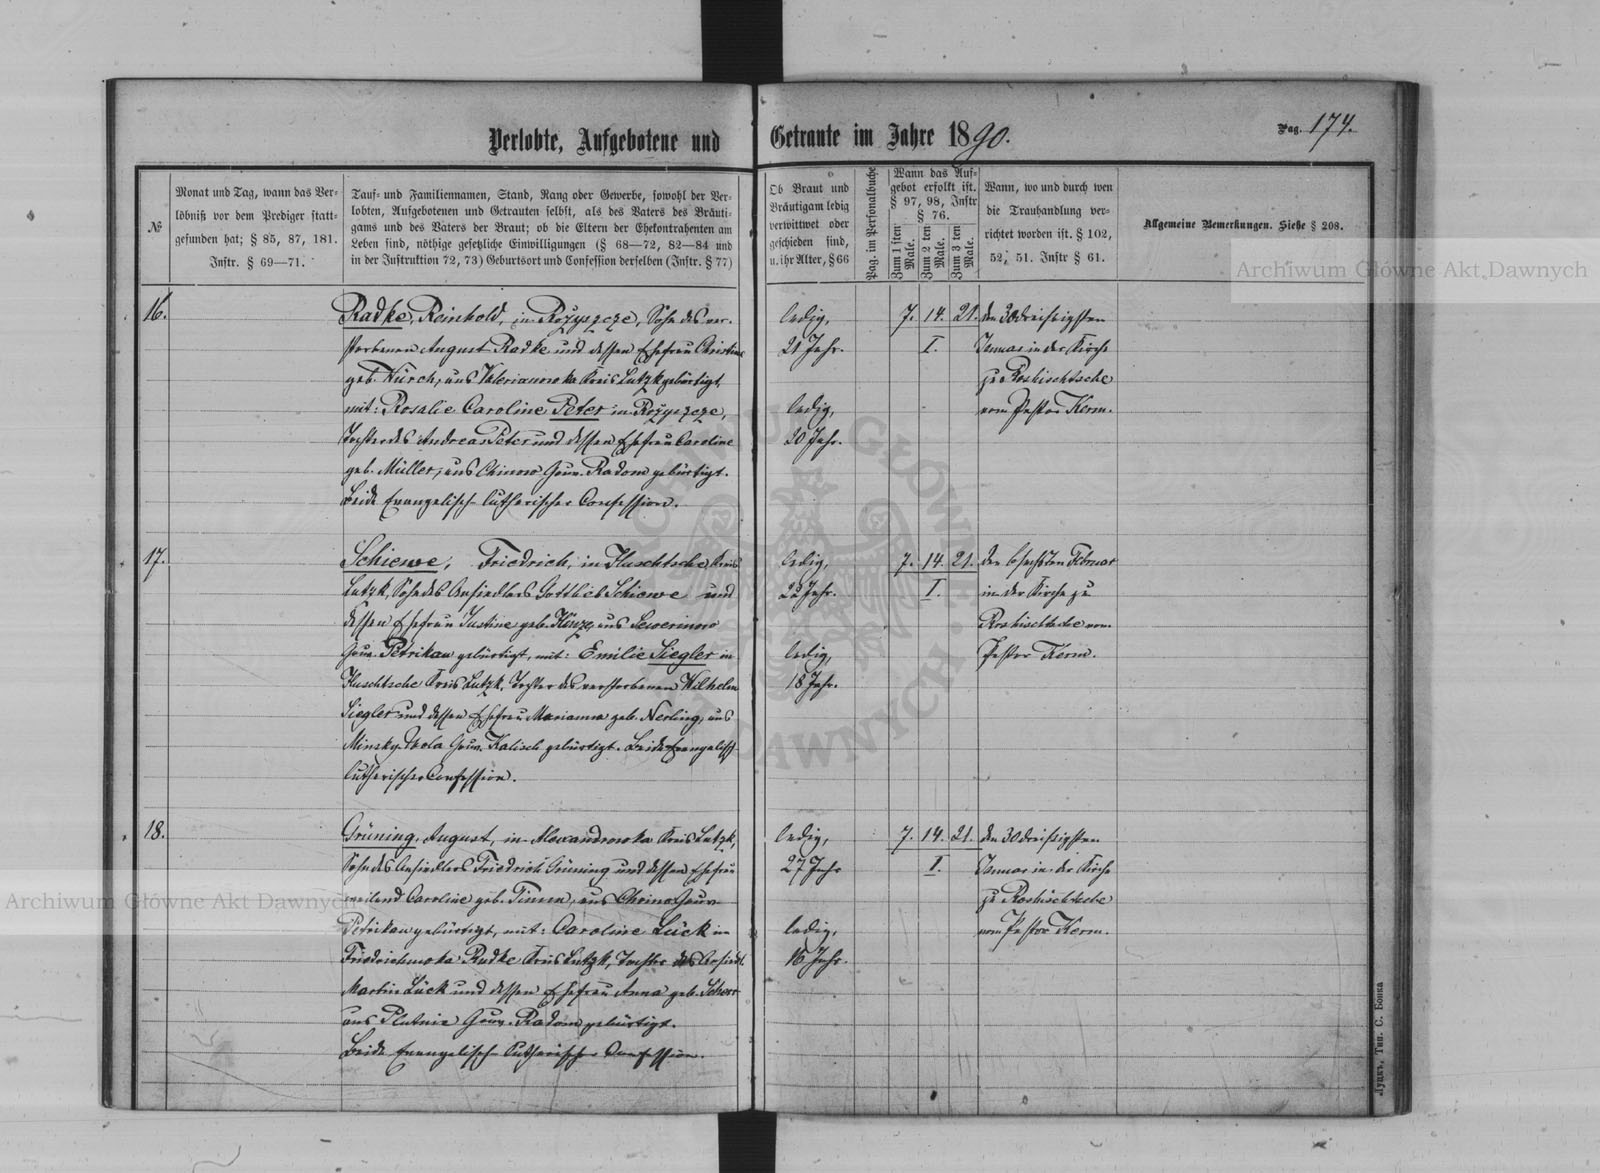 Verlobte, Aufgebotene und Getraute im Jahre 1890.
Pag. 174.
№
Monat und Tag, wann das Ver-
löbniß vor dem Prediger statt-
gefunden hat; § 85, 87, 181.
Instr. § 69—71.
Tauf- und Familiennamen, Stand, Rang oder Gewerbe, sowohl der Ver-
lobten, Aufgebotenen und Getrauten selbst, als des Vaters des Bräuti-
gams und des Vaters der Braut; ob die Eltern der Ehekontrahenten am
Leben sind, nöthige gesetzliche Einwilligungen (§ 68—72, 82—84 und
in der Instruktion 72, 73) Geburtsort und Confession derselben (Instr. § 77)
Ob Braut und
Bräutigam ledig
verwittwet oder
geschieden sind,
u. ihr Alter, § 66
Pag. im Personalbuche
Wann das Auf-
gebot erfolkt ist.
§ 97, 98, Instr
§ 76.
Zum 1 ten
Male.
Zum 2 ten
Male.
Zum 3 ten
Male.
Wann, wo und durch wen
die Trauhandlung ver-
richtet worden ist. § 102,
52, 51. Instr § 61.
Allgemeine Bemerkungen. Siehe § 208.
16.
Radke, Reinhold, in Rożyszcze, Sohn des ver-
storbenen August Radke und dessen Ehefrau Christine
geb. Würch, aus Valerianowka Kreis Lutzk gebürtigt,
mit: Rosalie Caroline Peter in Rożyszcze,
Tochter des Andreas Peter und dessen Ehefrau Caroline
geb. Müller, aus Gouv. Radom gebürtigt.
Beide Evangelisch-lutherischer Confession.
ledig,
21 Jahr.
ledig,
20 Jahr.
7. 14. 21.
I.
den 30 dreißigsten
Januar in der Kirche
zu Roshischtsche
vom Pastor Kerm.
17.
Schiewe, Friedrich, in Kluschtsche Kreis
Lutzk, Sohn des Ansiedlers Gottlieb Schiewe und
dessen Ehefrau Justine geb. aus Sewerinow
Gouv. Petrikau gebürtigt, mit: Emilie Siegler in
Kluschtsche Kreis Lutzk, Tochter des verstorbenen Wilhelm
Siegler und dessen Ehefrau Marianna geb. Nerling, aus
Wola Gouv. Kalisch gebürtigt. Beide Evangelisch
lutherischer Confession.
ledig,
22 Jahr.
ledig,
18 Jahr.
7. 14. 21.
I.
den 6 sechsten Februar
in der Kirche zu
Roshischtsche vom
Pastor Kerm.
18.
Grüning, August, in Alexandrowka Kreis Lutzk,
Sohn des Ansiedlers Friedrich Grüning und dessen Ehefrau
weiland Caroline geb. Timm, aus Gouv.
Petrikau gebürtigt, mit: Caroline Lück in
Friedrichowka Kreis Lutzk, Tochter des Ansiedl.
Martin Lück und dessen Ehefrau Anna geb. Scherr
aus Gouv. Radom gebürtigt.
Beide Evangelisch-Lutherischer Confession.
ledig,
27 Jahr
ledig,
16 Jahr.
7. 14. 21.
I.
den 30 dreißigsten
Januar in der Kirche
zu Roshischtsche
vom Pastor Kerm.
Луцкъ, Тип. С. Бонка
Archiwum Główne Akt Dawnych
Archiwum Główne Akt Dawnych
ARCHIWUM GŁÓWNE AKT DAWNYCH